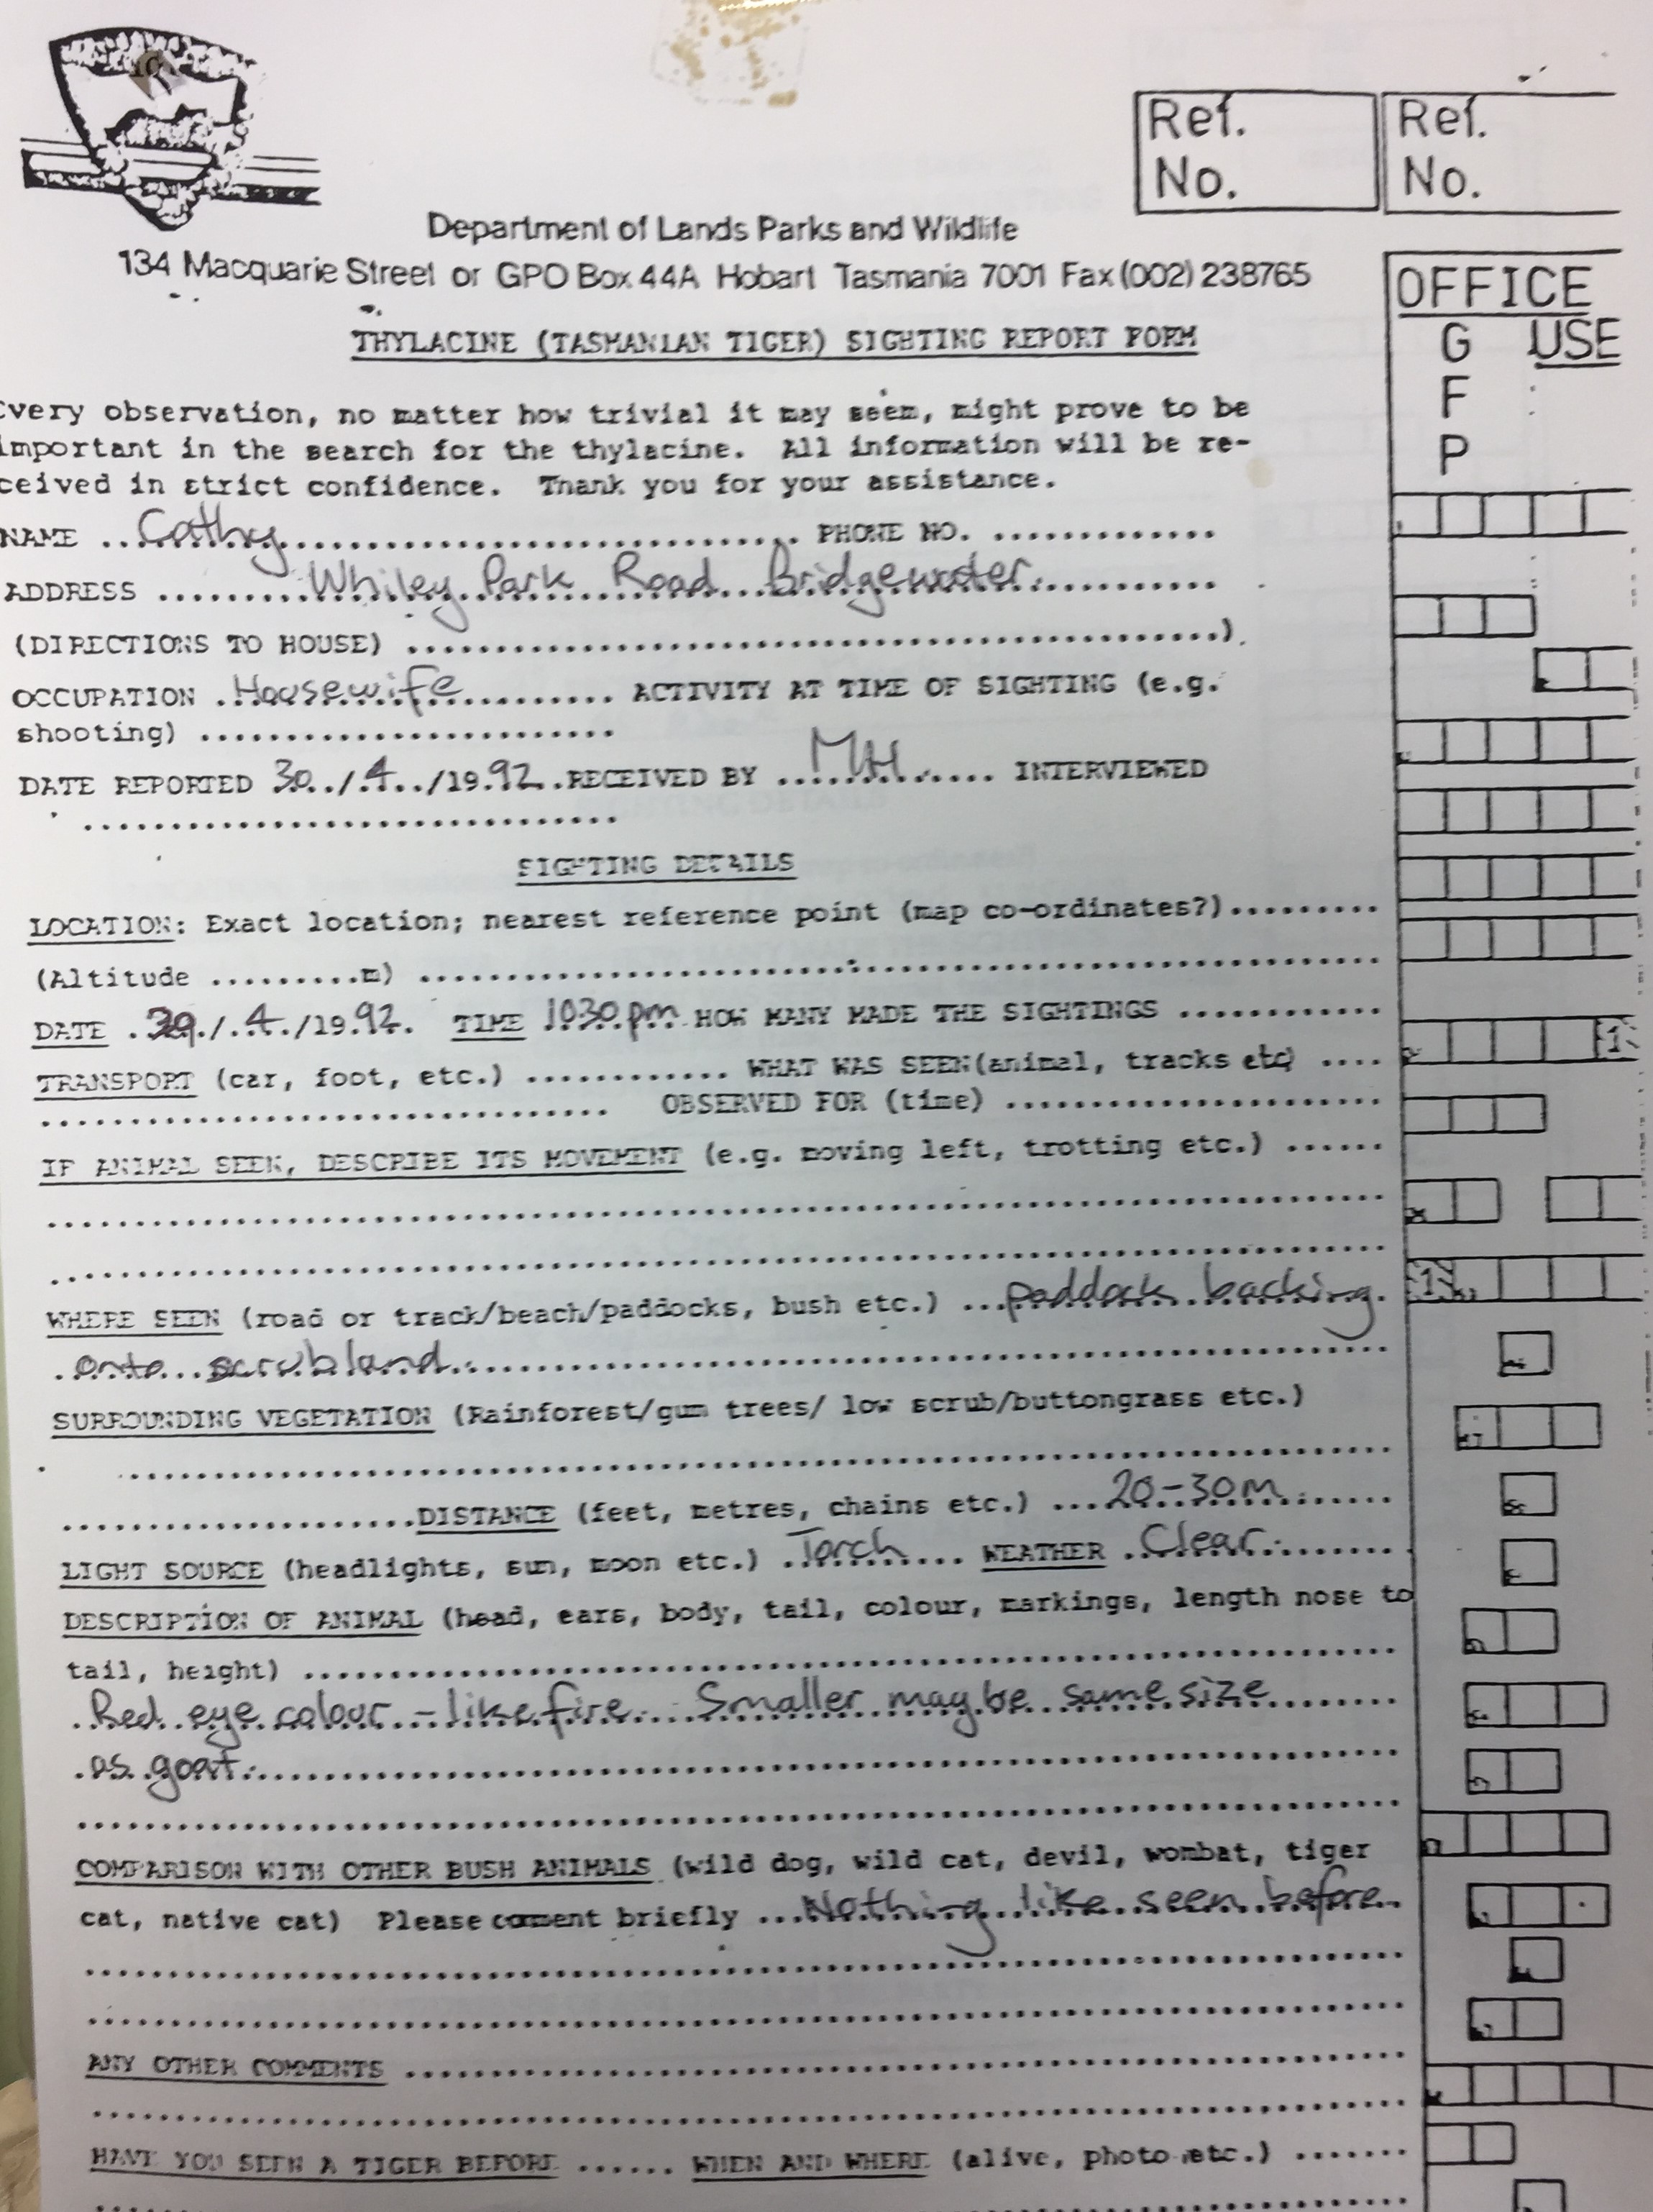 Ref. No.
Ref. No.
Department of Lands Parks and Wildlife
134 Macquarie Street or GPO Box 44A Hobart Tasmania 7001 Fax (002) 238765
OFFICE
USE
G
F
P
THYLACINE (TASMANIAN TIGER) SIGHTING REPORT FORM
Every observation, no matter how trivial it may seem, might prove to be
important in the search for the thylacine. All information will be re-
ceived in strict confidence. Thank you for your assistance.
NAME ...Cathy... PHONE NO. .............
ADDRESS .........Whiley Park Road Bridgewater............
(DIRECTIONS TO HOUSE) ........................................)
OCCUPATION .Housewife......... ACTIVITY AT TIME OF SIGHTING (e.g.
shooting) ........................
DATE REPORTED 30../.4../19.92..RECEIVED BY ...MH...... INTERVIEWED
...............................
SIGHTING DETAILS
LOCATION: Exact location; nearest reference point (map co-ordinates?).........
(Altitude .........m) ..........................................................
DATE .29./.4./19.92. TIME 1030pm HOW MANY MADE THE SIGHTINGS ............
TRANSPORT (car, foot, etc.) ............ WHAT WAS SEEN(animal, tracks etc) ....
................................. OBSERVED FOR (time) ......................
IF ANIMAL SEEN, DESCRIBE ITS MOVEMENT (e.g. moving left, trotting etc.) ......
...............................................................................
...............................................................................
WHERE SEEN (road or track/beach/paddocks, bush etc.) ...paddock backing.
.onto...scrubland.............................................................
SURROUNDING VEGETATION (Rainforest/gum trees/ low scrub/buttongrass etc.)
...........................................................................
....................DISTANCE (feet, metres, chains etc.) ...20-30m.......
LIGHT SOURCE (headlights, sun, moon etc.) ..Torch.... WEATHER ..Clear.........
DESCRIPTION OF ANIMAL (head, ears, body, tail, colour, markings, length nose to
tail, height) .................................................................
.Red eye colour - like fire. Smaller maybe same size.......
.as goat......................................................................
...............................................................................
COMPARISON WITH OTHER BUSH ANIMALS (wild dog, wild cat, devil, wombat, tiger
cat, native cat) Please comment briefly ...Nothing like seen before..
...............................................................................
...............................................................................
ANY OTHER COMMENTS ...........................................................
...............................................................................
HAVE YOU SEEN A TIGER BEFORE ...... WHEN AND WHERE (alive, photo etc.) .......